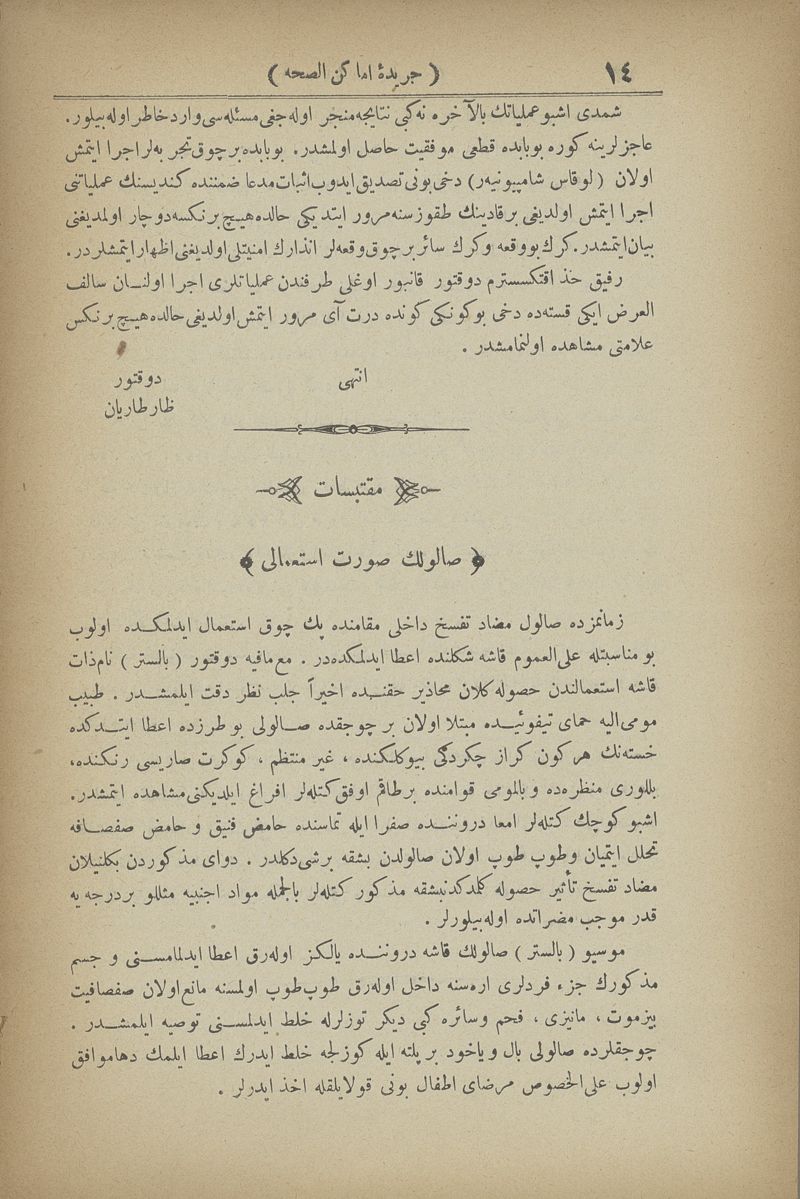 ١٤
( جریدهٔ اماکن الصحه )
شمدی اشبو عملیاتك بالآخره نه‌کبی نتایجه منجر اوله‌جغی مسئله‌سی وارد خاطر اوله‌بیلور.
عاجزلرینه کوره بوبابده قطعی موفقیت حاصل اولمشدر. بوبابده بر چوق تجربه‌لر اجرا ایتمش
اولان (لوقاس شامپیونیه‌ر) دخی بونی تصدیق ایدوب اثبات مدعا ضمننده کندیسنك عملیاتنی
اجرا ایتمش اولدیغی بر قادینك طقوز سنه مرور ایتدیکی حالده هیچ بر نکسه دوچار اولمدیغنی
بیان ایتمشدر. کرك بو وقعه وکرك سائر بر چوق وقعه‌لر انذارك امنیتلی اولدیغنی اظهار ایتمشلردر.
رفیق حذاقتکسترم دوقتور قانبور اوغلی طرفندن عملیاتلری اجرا اولنــان سالف
العرض ایکی قسته‌ده دخی بوکونکی کونده درت آی مرور ایتمش اولدیغی حالده هیچ بر نکس
علامتی مشاهده اولنمامشدر .
انتهی
دوقتور
ظارطاریان
مقتبسات
﴿ صالولك صورت استعمالی ﴾
زمانمزده صالول مضاد تفسخ داخلی مقامنده پك چوق استعمال ایدلمکــده اولوب
بو مناسبتله علی‌العموم قاشه شکلنده اعطا ایدلمکده‌در . مع‌مافیه دوقتور ( بالستر ) نام ذات
قاشه استعمالندن حصوله کلان محاذیر حقنــده اخیراً جلب نظر دقت ایلمشــدر . طبیب
مومی‌الیه حمای تیفوئیــده مبتلا اولان بر چوجقده صــالولی بو طرزده اعطا ایتــدکده
خسته‌نك هر کون کراز چکردکی بیوکلکنده ، غیر منتظم ، کوکرت صاریسی رنکنده،
بللوری منظره‌ده و بالمومی قوامنده برطاقم اوفق کتله‌لر افراغ ایلدیکنی مشاهده ایتمشدر.
اشبو کوچك کتله‌لر امعا دروننــده صفرا ایله تماسنده حامض فنیق و حامض صفصــافه
تحلل ایتمیان وطوپ طوپ اولان صالولدن بشقه برشی دکلدر . دوای مذکوردن بکلنیلان
مضاد تفسخ تأثیر حصوله کلمدکدنبشقه مذکور کتله‌لر بالجمله مواد اجنبیه مثللو بر درجه یه
قدر موجب مضراتده اوله‌بیلورلر .
موسیو ( بالستر ) صالولك قاشه دروننــده یالکز اوله‌رق اعطا ایدلمامســنی و جسم
مذکورك جزء فردلری اره‌سنه داخل اوله‌رق طوپ طوپ اولمسنه مانع اولان صفصافیت
بیزموت ، مانیزی ، فحم وسائره کبی دیکر توزلرله خلط ایدلمســنی توصیه ایلمشــدر .
چوجقلرده صالولی بال و یاخود بر پلته ایله کوزلجه خلط ایدرك اعطا ایلمك دها موافق
اولوب علی‌الخصوص مرضای اطفال بونی قولایلقله اخذ ایدرلر .